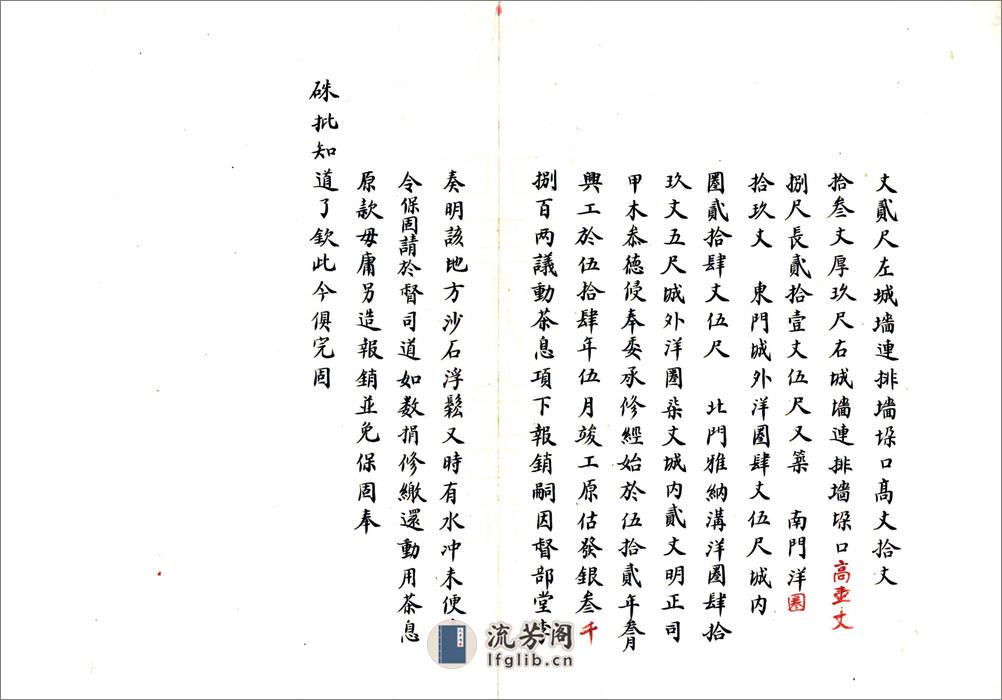 丈貳尺左城墻連排墻垜口髙丈拾丈
拾叁丈厚玖尺右城墻連排墻垜口高壹丈
捌尺長貳拾壹丈伍尺又築　南門洋圈
拾玖丈　東門城外洋圈肆丈伍尺城內
圈貳拾肆丈伍尺　北門雅納溝洋圈肆拾
玖丈五尺城外洋圈柒丈城內貳丈明正司
甲木叅德侵奉委承修經始於伍拾貳年叁月
興工於伍拾肆年伍月竣工原估發銀叁千
捌百两議動茶息項下報銷嗣因督部堂李
奏明該地方沙石浮鬆又時有水冲未便
令保固請於督司道如数捐修繳還動用茶息
原款毋庸另造報銷並免保固奉
硃批知道了欽此今俱完固
流芳阁
lfglib.cn